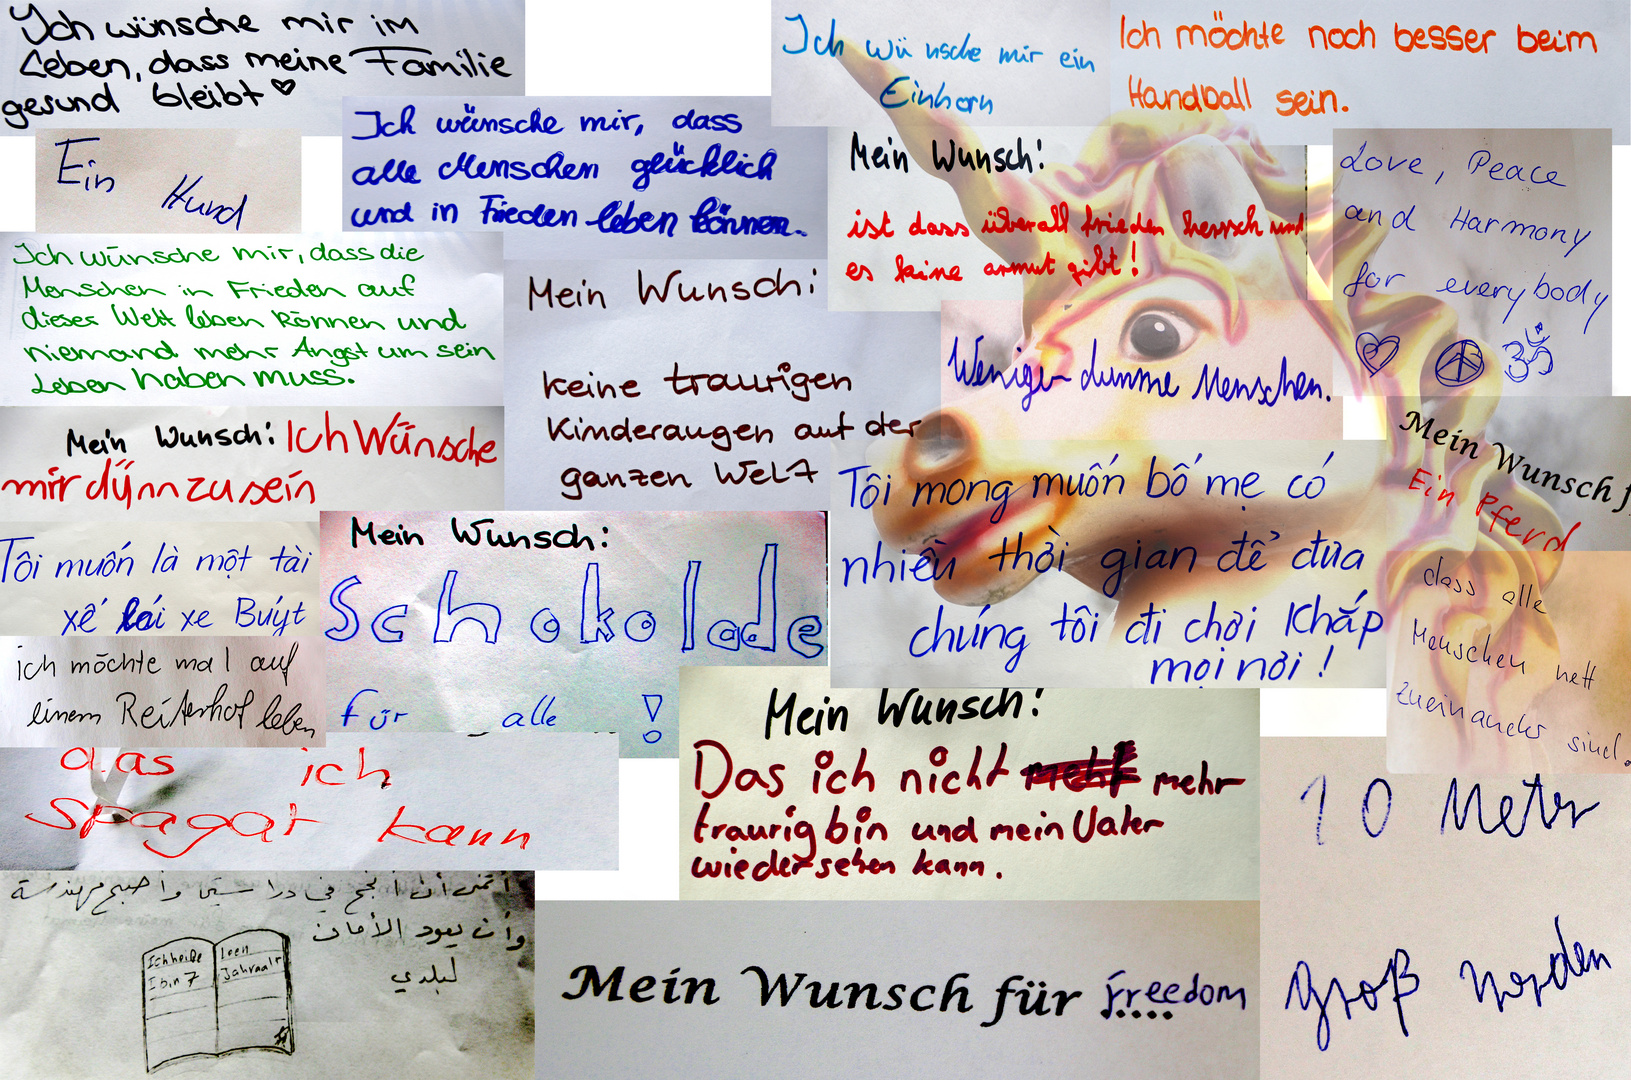 Ich wünsche mir im
Leben, dass meine Familie
gesund bleibt ♡
Ich wünsche mir ein
Einhorn
Ich möchte noch besser beim
Handball sein.
Ein Hund
Ich wünsche mir, dass
alle Menschen glücklich
und in Frieden leben können.
Mein Wunsch:
ist dass überall frieden herrsch und
es keine armut gibt!
Love, Peace
and Harmony
for everybody
ॐ
Ich wünsche mir, dass die
Menschen in Frieden auf
dieser Welt leben können und
niemand mehr Angst um sein
Leben haben muss.
Mein Wunsch:
keine traurigen
Kinderaugen auf der
ganzen Welt
Weniger dumme Menschen.
Mein Wunsch: Ich Wünsche
mir dÿnn zu sein
Mein Wunsch f
Ein Pferd
Tôi muốn là một tài
xế lái xe Buýt
Mein Wunsch:
Schokolade
für alle!
Tôi mong muốn bố mẹ có
nhiều thời gian để đưa
chúng tôi đi chơi khắp
mọi nơi!
dass alle
Menschen nett
zueinander sind.
ich möchte mal auf
einem Reiterhof leben
das ich
spagat kann
Mein Wunsch:
Das ich nicht mehr
traurig bin und mein Vater
wieder sehen kann.
10 Meter
groß werden
أتمنى أن أنجح في دراستي وأصبح مهندسة
وأن يعود الأمان
لبلدي
Ich heiße Leen
I bin 7 Jahraalt
Mein Wunsch für freedom